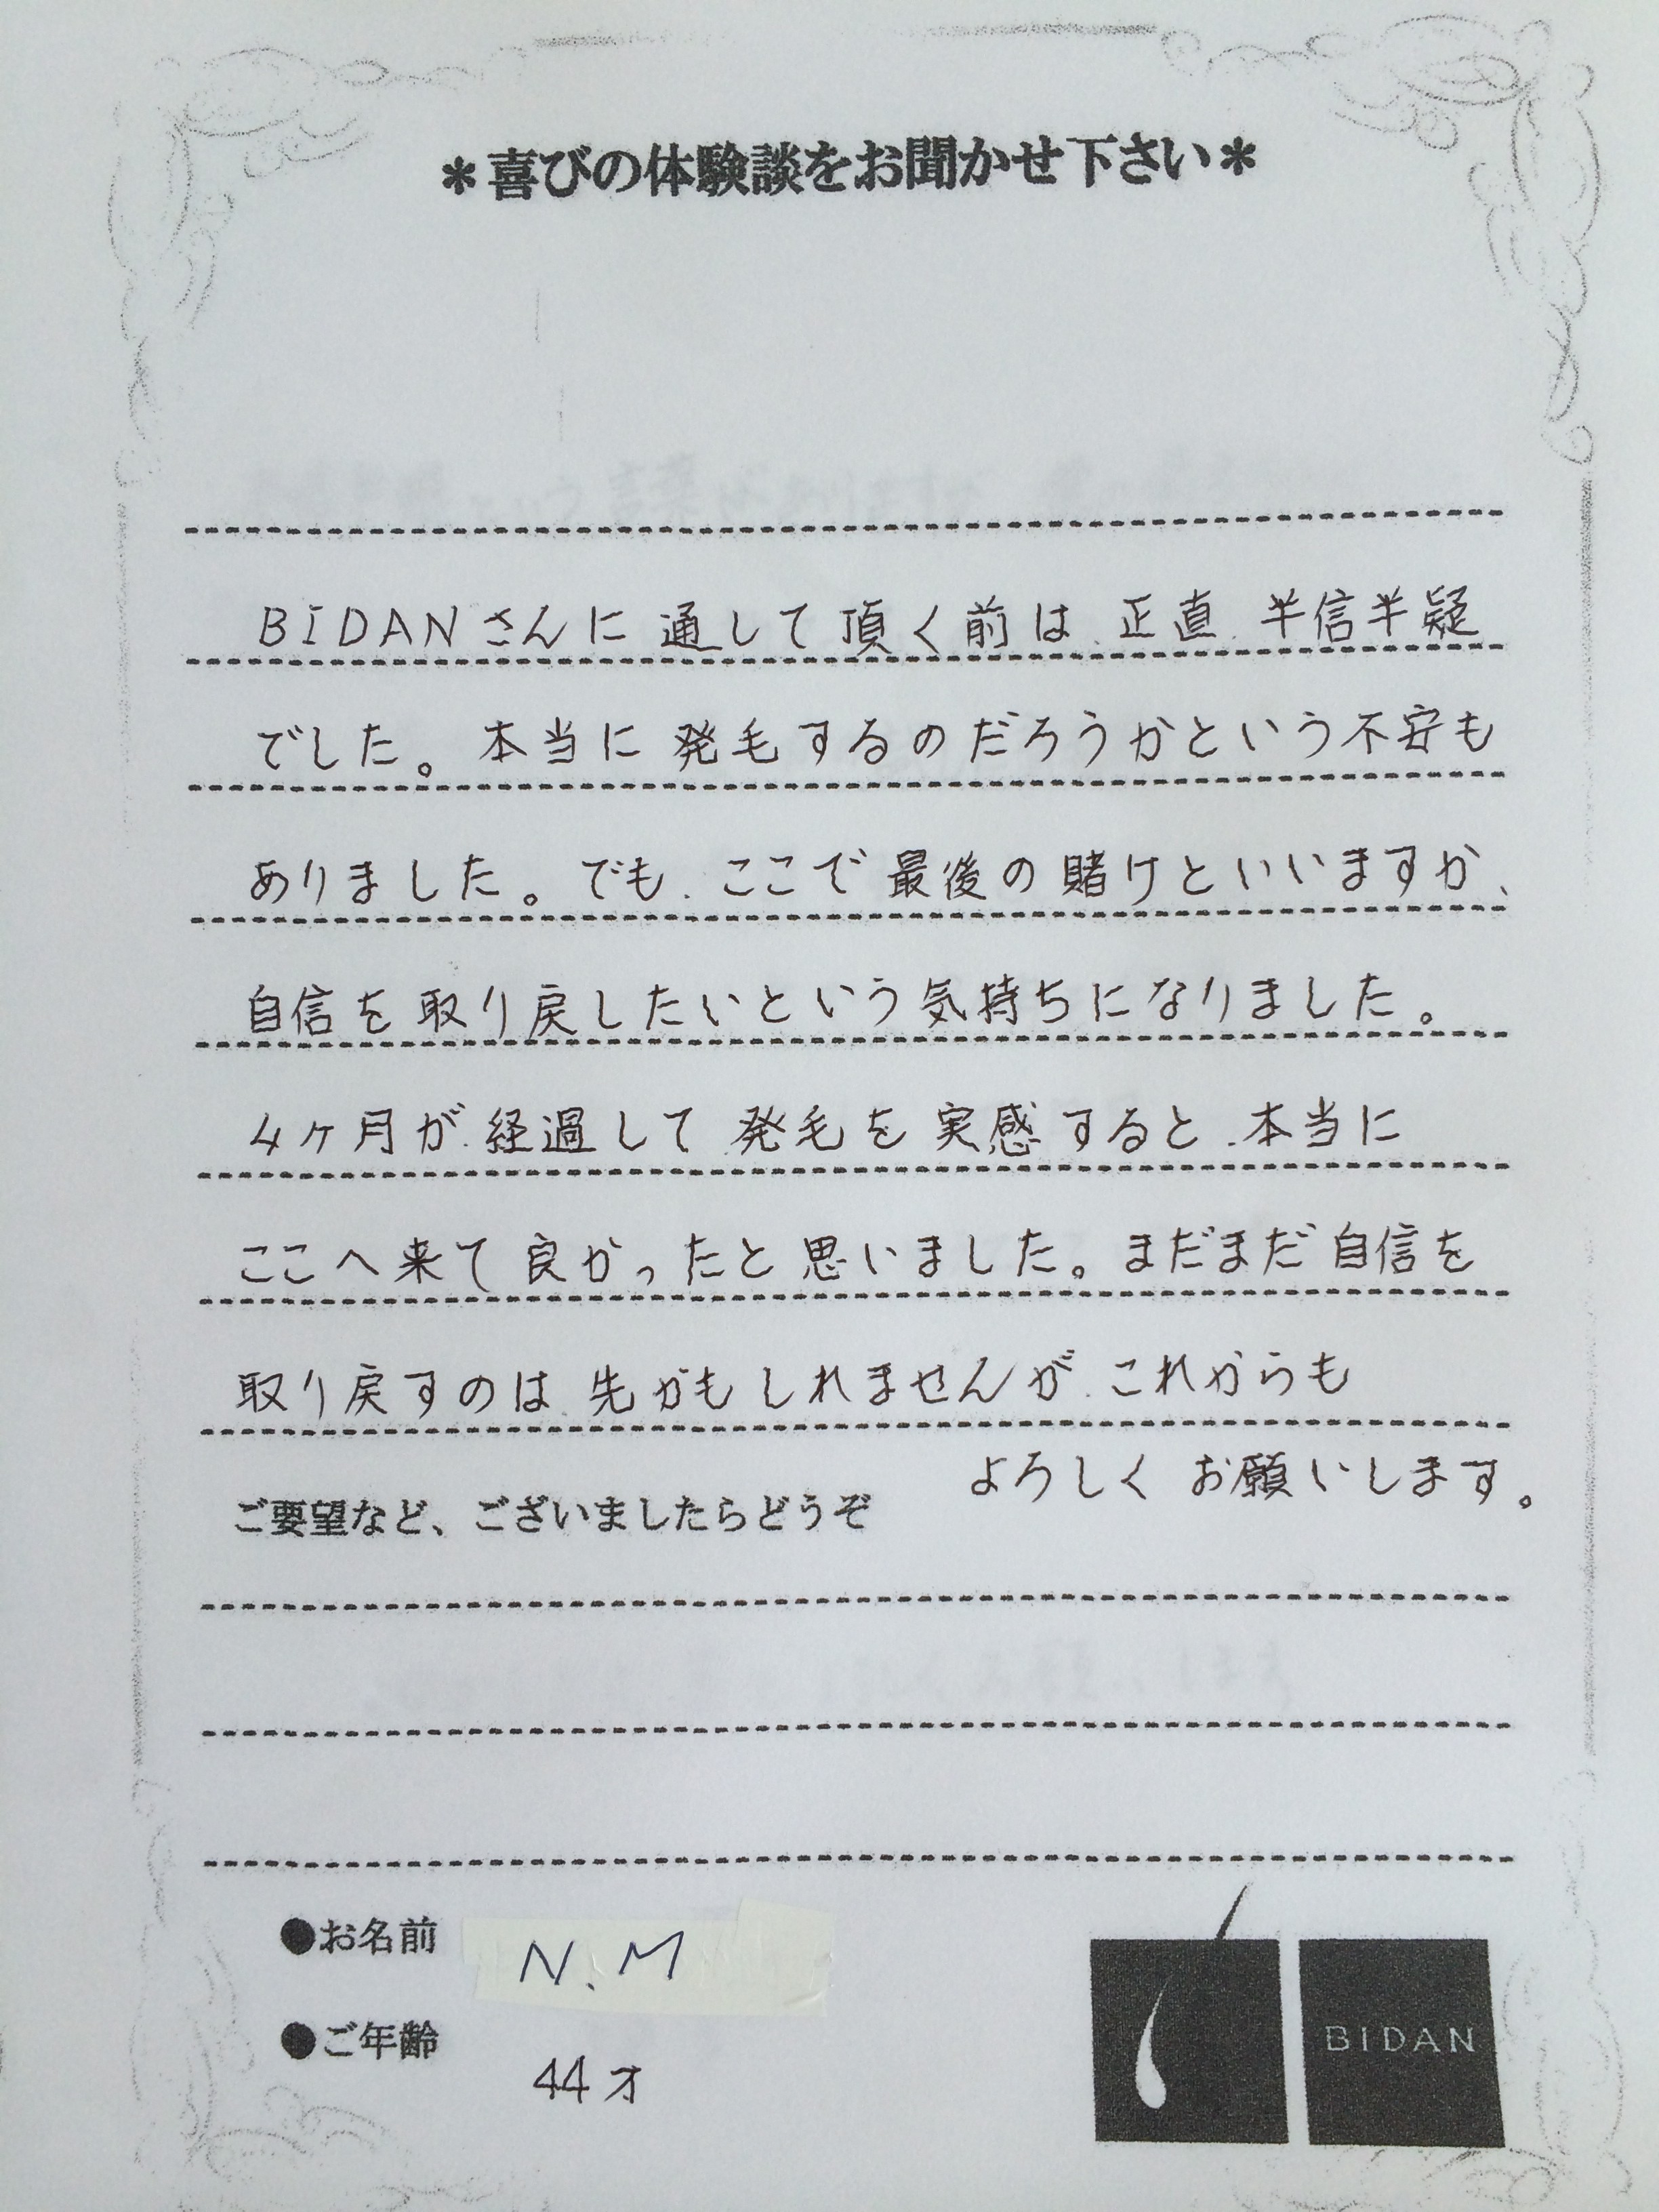 ＊喜びの体験談をお聞かせ下さい＊
BIDANさんに通して頂く前は、正直、半信半疑
でした。本当に発毛するのだろうかという不安も
ありました。でも、ここで最後の賭けといいますか、
自信を取り戻したいという気持ちになりました。
4ヶ月が経過して発毛を実感すると、本当に
ここへ来て良かったと思いました。まだまだ自信を
取り戻すのは、先かもしれませんが、これからも
よろしくお願いします。
ご要望など、ございましたらどうぞ
●お名前 N.M
●ご年齢 44才
BIDAN